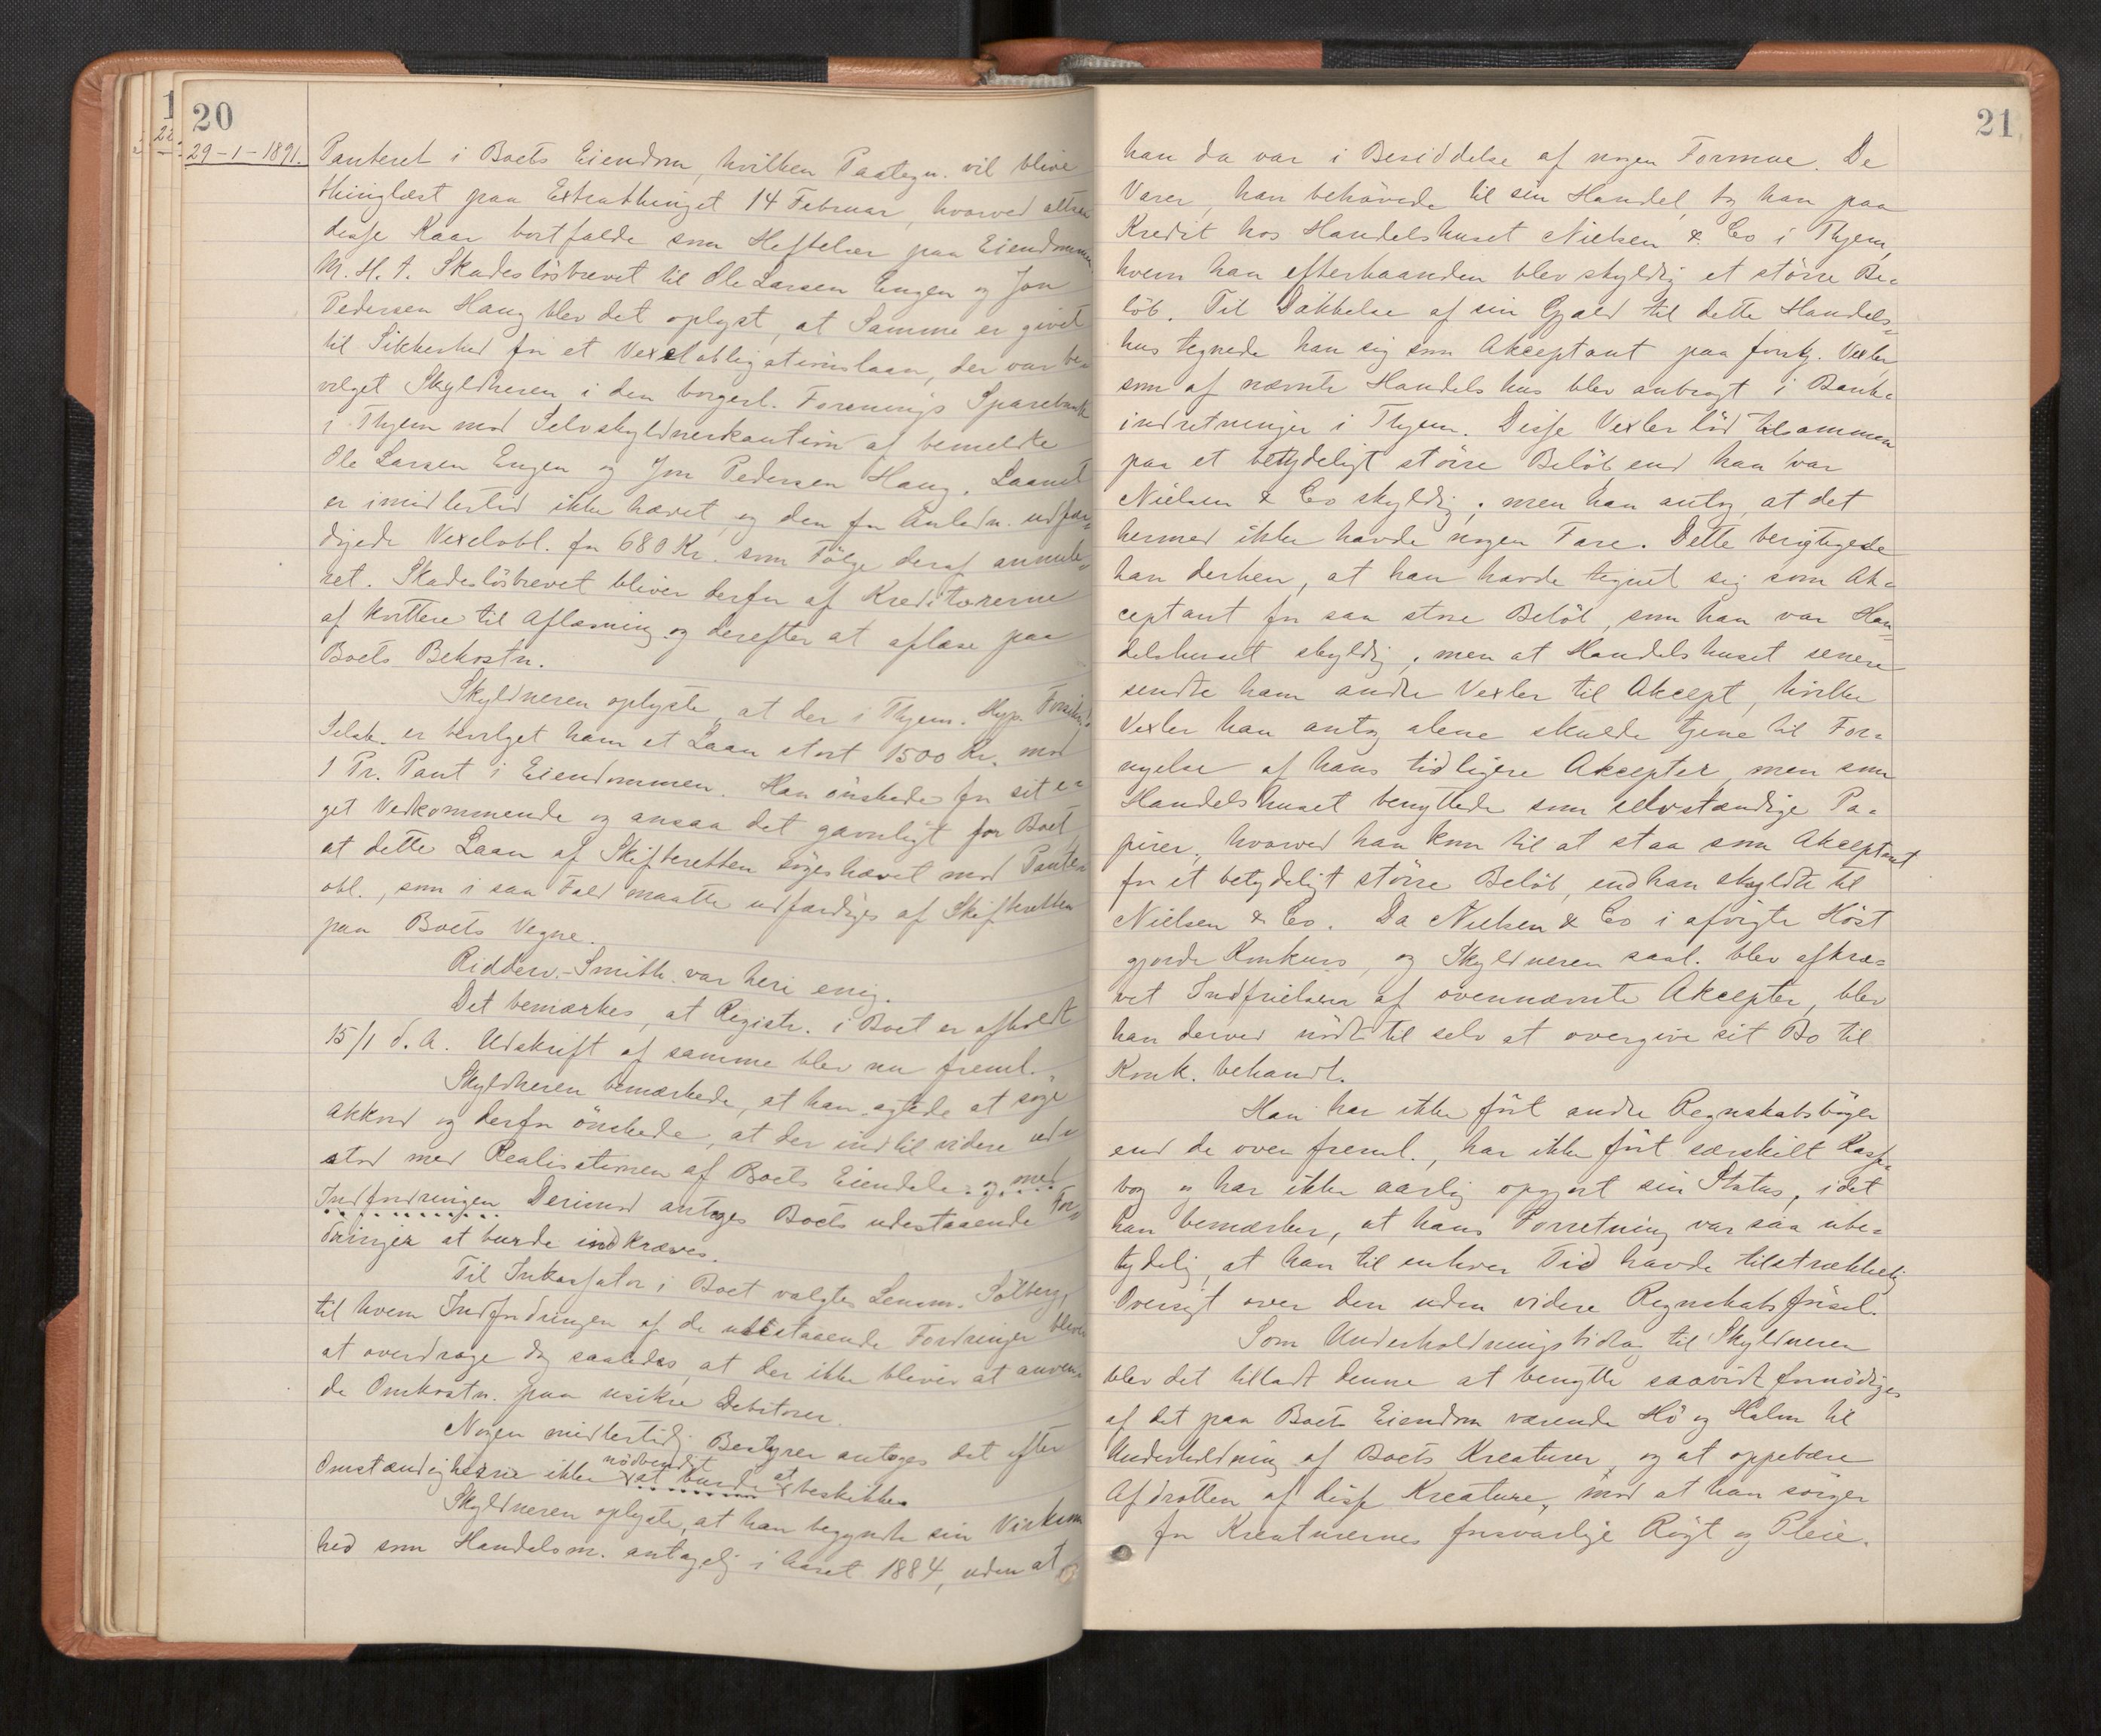 20
29-1-1891.
Panteret i Boets Eiendom, hvilken Paategn. vil blive
thinglæst paa Extrathinget 14 Februar, hvorved altsaa
disse Kaar bortfalde som Heftelser paa Eiendommen.
M. H. t. Skadesløsbrevet til Ole Larsen Engen og Jon
Pedersen Haug blev det oplyst, at Samme er givet
til Sikkerhed for et Vexelobligationslaan, der var be-
vilget Skyldneren i den borgerl. Forenings Sparebank
i Thjem mod Selvskyldnerkaution af bemeldte
Ole Larsen Engen og Jon Pedersen Haug. Laanet
er imidlertid ikke hævet og den for Anledn. udfær-
digede Vexelobl. for 680 Kr. som Følge deraf annule-
ret. Skadesløsbrevet bliver derfor af Kreditorerne
af kvittere til Aflæsning og derefter at aflæse paa
Boets Bekostn.
Skyldneren oplyste, at der i Thjems. Hyp. Forsikr.
Selsk. er bevilget ham et Laan stort 1500 Kr. mod
1 Pr. Pant i Eiendommen. Han ønskede for sit e-
get Vedkommende og ansaa det gavnligt for Boet
at dette Laan af Skifteretten søges hævet mod Pante-
obl., som i saa Fald maatte udfærdiges af Skifteretten
paa Boets Vegne.
Ridderv.-Smith var heri enig.
Det bemærkes, at Registr. i Boet er afholdt
15/1 d. A. Udskrift af samme blev nu freml.
Skyldneren bemærkede, at han agtede at søge
Akkord og derfor ønskede, at der indtil videre ud-
stod med Realisationen af Boets Eiendele og med
Indfordringen Derimod antages Boets udestaaende For-
dringer at burde indkræves.
Til Inkassator i Boet valgtes Lensm. Sølberg,
til hvem Indfordringen af de udestaaende Fordringer bliver
at overdrage dog saaledes, at der ikke bliver at anven-
de Omkostn. paa usikre Debitorer.
Nogen midlertidig Bestyrer antoges det efter
nødvendigt at
Omstændighederne ikke at burde beskikkes
Skyldneren oplyste, at han begyndte sin Virksom
hed som Handelsm. antagelig i Aaret 1884, uden at
21
han da var i Besiddelse af nogen Formue. De
Varer, han behøvede til sin Handel, tog han paa
Kredit hos Handelshuset Nielsen & Co i Thjem,
hvem han efterhaanden blev skyldig et større Be-
løb. Til Dækkelse af sin Gjæld til dette Handels-
hus tegnede han sig som Akceptant paa forskj. Vexler,
som af nævnte Handelshus blev anbragt i Bank-
indretninger i Thjem. Disse Vexler lød tilsammen
paa et betydeligt større Beløb end han var
Nielsen & Co skyldig; men han antog, at det
hermed ikke havde nogen Fare. Dette berigtigede
han derhen, at han havde tegnet sig som Ak-
ceptant for saa store Beløb, som han var Han-
delshuset skyldig; men at Handelshuset senere
sendte ham andre Vexler til Akcept, hvilke
Vexler han antog alene skulde tjene til For-
nyelse af hans tidligere Akcepter, men som
Handelshuset benyttede som selvstændige Pa-
pirer, hvorved han kom til at staa som Akceptant
for et betydeligt større Beløb, end han skyldte til
Nielsen & Co. Da Nielsen & Co i afvigte Høst
gjorde Konkurs og Skyldneren saal. blev afkræ-
vet Indfrielsen af ovennævnte Akcepter, blev
han derved nødt til selv at overgive sit Bo til
Konk. behandl.
Han har ikke ført andre Regnskabsbøger
end de oven freml., har ikke ført særskilt Kasse-
bog og har ikke aarlig opgjort sin Status, idet
han bemærker, at hans Forretning var saa ube-
tydelig, at han til enhver Tid havde tilstrækkelig
Oversigt over den uden videre Regnskabsførsel.
Som Underholdningsbidrag til Skyldneren
blev det tilladt denne at benytte saavidt fornødiges
af det paa Boets Eiendom værende Hø og Halm til
Underholdning af Boets Kreaturer, og at oppebære
Afdrotten af disse Kreature, mod at han sørger
for Kreaturernes forsvarlige Røgt og Pleie.